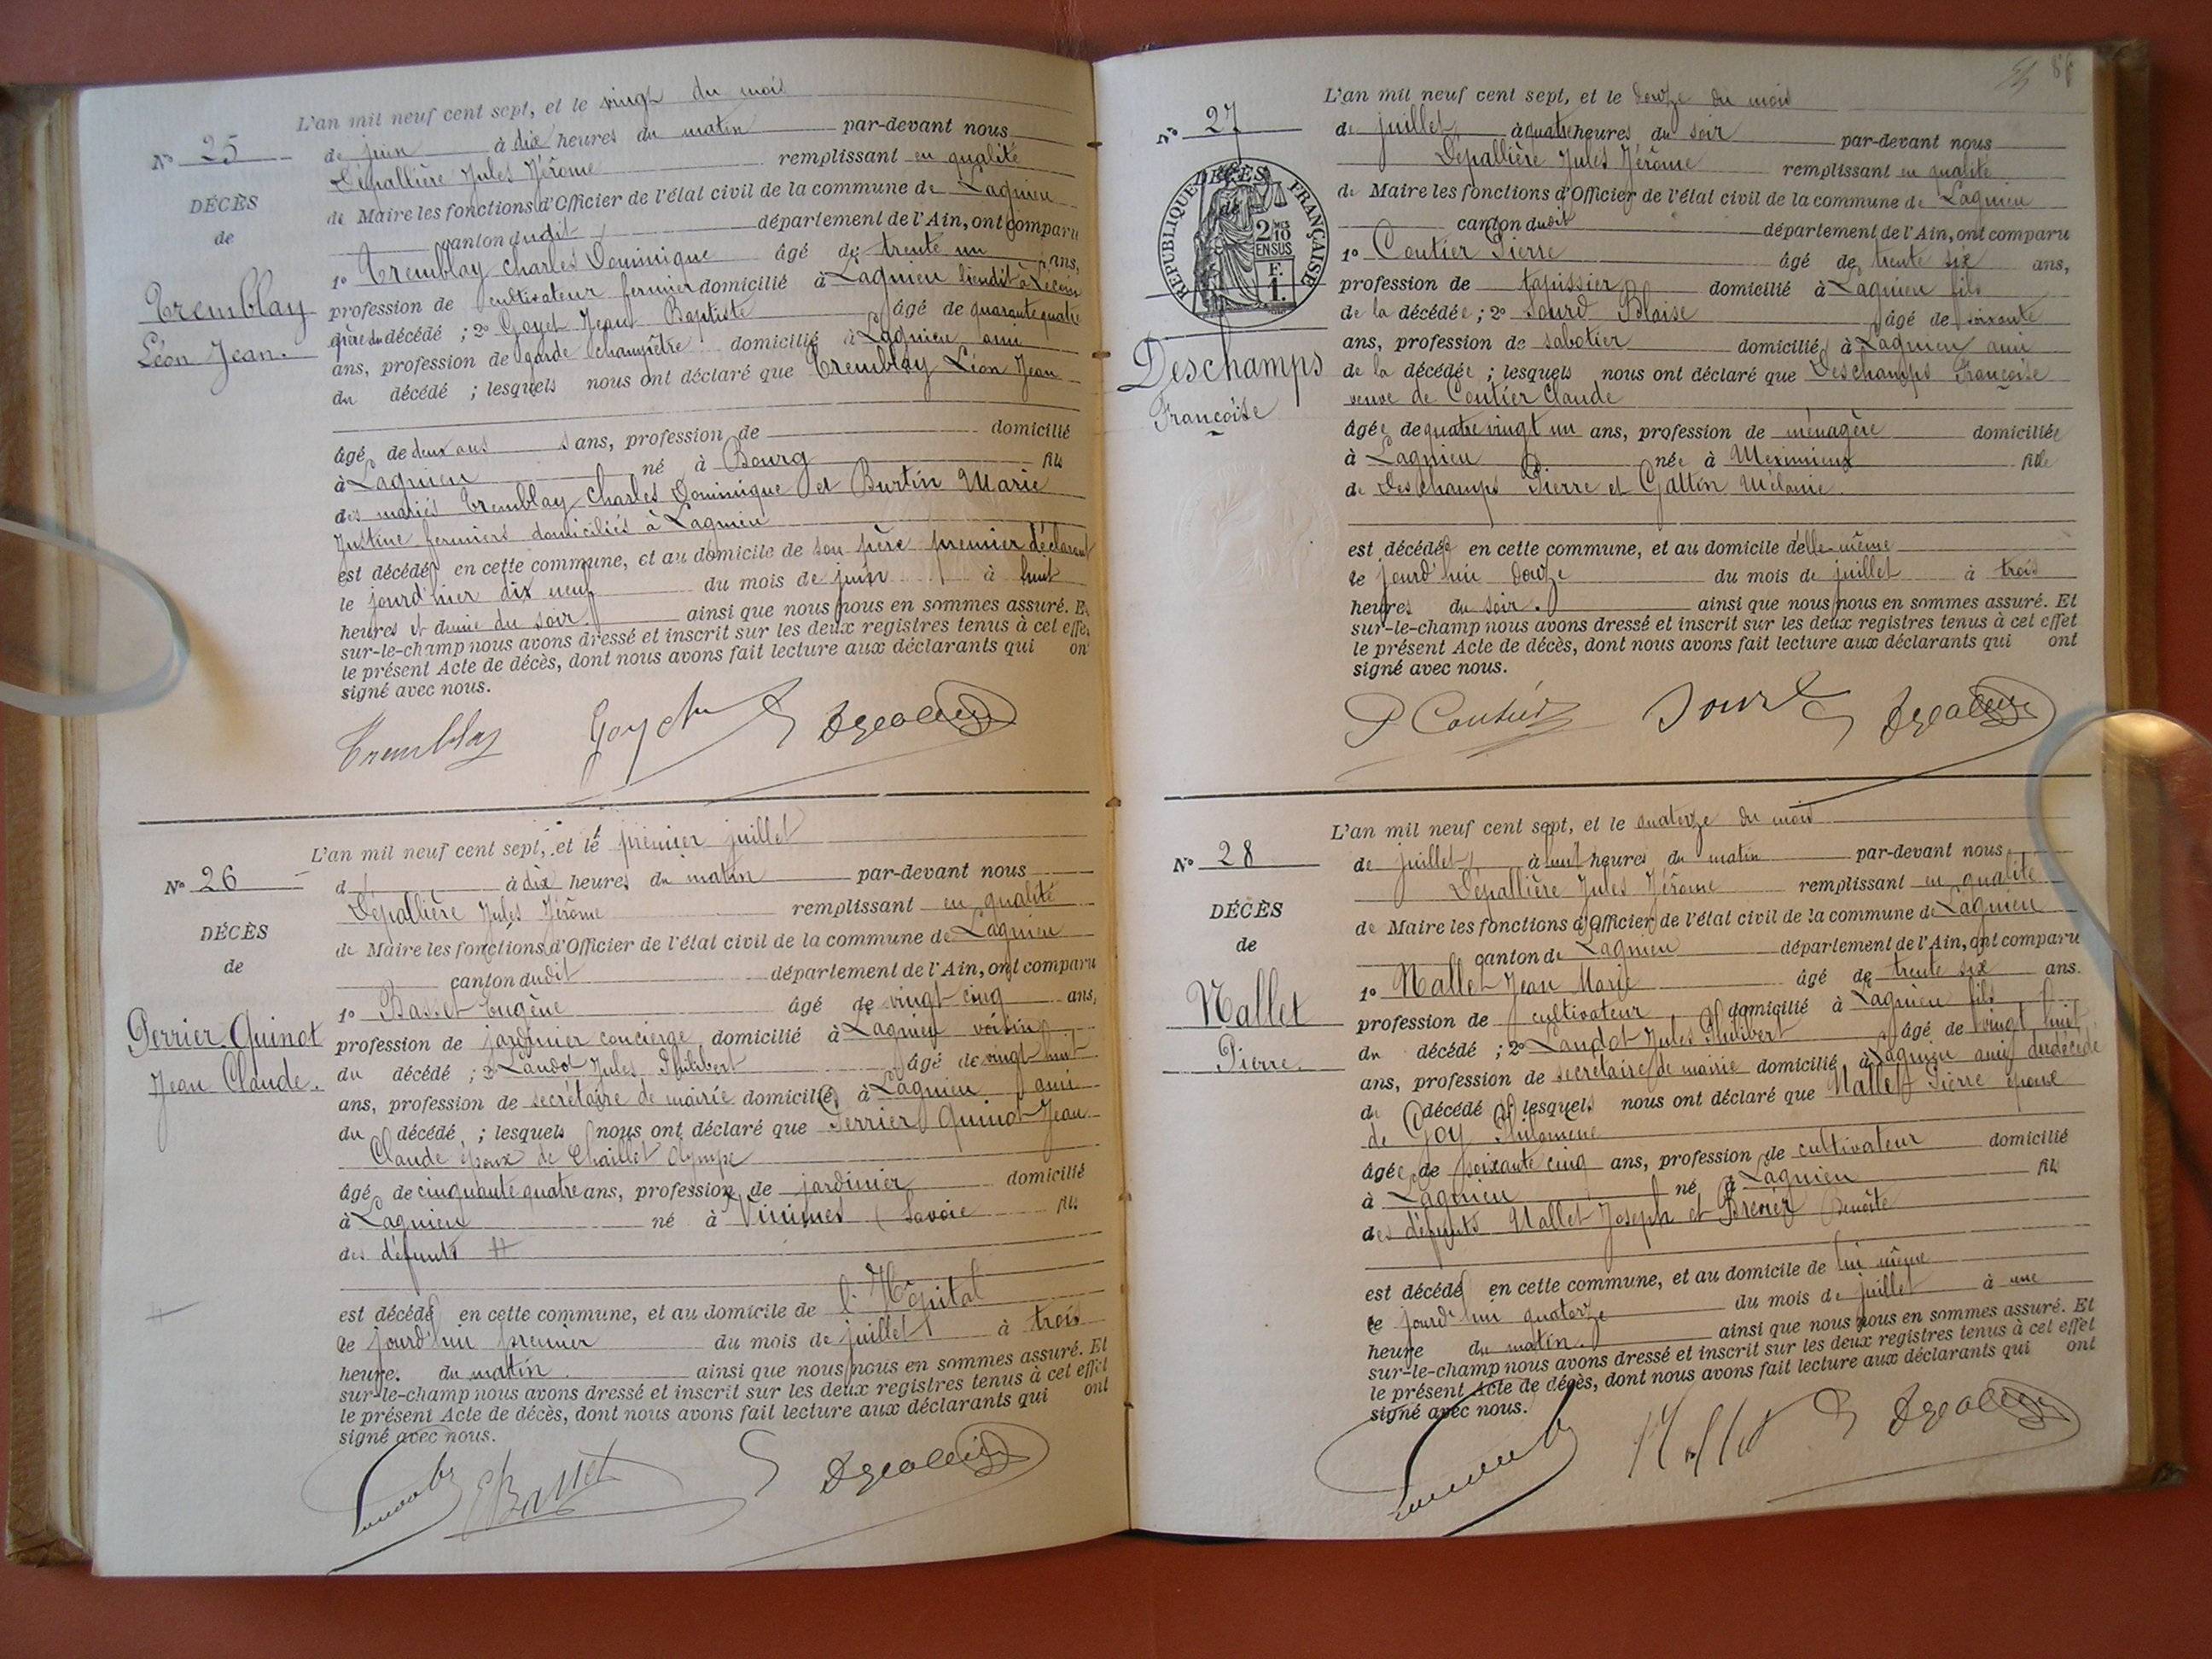 L'an mil neuf cent sept, et le vingt du mois
N° 25
de juin à dix heures du matin par-devant nous
Dépallière Jules Jérôme remplissant en qualité
DÉCÈS
de Maire les fonctions d'Officier de l'état civil de la commune de Lagnieu
de
canton dudit département de l'Ain, ont comparu
1° Tremblay Charles Dominique âgé de trente un ans,
Tremblay
Léon Jean.
profession de cultivateur fermier domicilié à Lagnieu lieudit à
père du décédé ; 2° Goyet Jean Baptiste âgé de quarante quatre
ans, profession de garde champêtre domicilié à Lagnieu ami
du décédé ; lesquels nous ont déclaré que Tremblay Léon Jean
âgé de deux ans ans, profession de domicilié
à Lagnieu né à Bourg fils
des mariés Tremblay Charles Dominique et Burtin Marie
Justine fermiers domiciliés à Lagnieu
est décédé en cette commune, et au domicile de son père premier déclarant
le jourd'hier dix neuf du mois de juin à huit
heures et demie du soir. ainsi que nous nous en sommes assuré. Et
sur-le-champ nous avons dressé et inscrit sur les deux registres tenus à cet effet
le présent Acte de décès, dont nous avons fait lecture aux déclarants qui ont
signé avec nous.
Tremblay Goyet
L'an mil neuf cent sept, et le premier juillet
N° 26
d à dix heures du matin par-devant nous
Dépallière Jules Jérôme remplissant en qualité
DÉCÈS
de Maire les fonctions d'Officier de l'état civil de la commune de Lagnieu
de
canton dudit département de l'Ain, ont comparu
1° Basset Eugène âgé de vingt cinq ans,
Perrier-Quinot
Jean Claude.
profession de jardinier concierge domicilié à Lagnieu voisin
du décédé ; 2° Landot Jules Philibert âgé de vingt huit
ans, profession de secrétaire de mairie domicilié à Lagnieu ami
du décédé ; lesquels nous ont déclaré que Perrier Quinot Jean
Claude époux de Chaillet Olympe
âgé de cinquante quatre ans, profession de jardinier domicilié
à Lagnieu né à Vimines (Savoie fils
des défunts #
est décédé en cette commune, et au domicile de l'Hôpital
le jourd'hui premier du mois de juillet à trois
heure. du matin. ainsi que nous nous en sommes assuré. Et
sur-le-champ nous avons dressé et inscrit sur les deux registres tenus à cet effet
le présent Acte de décès, dont nous avons fait lecture aux déclarants qui ont
signé avec nous.
EBasset
86
L'an mil neuf cent sept, et le douze du mois
N° 27
de juillet à quatre heures du soir par-devant nous
Dépallière Jules Jérôme remplissant en qualité
RÉPUBLIQUE FRANÇAISE
DÉCÈS
de
2/10 EN SUS
F.
1.
de Maire les fonctions d'Officier de l'état civil de la commune de Lagnieu
canton dudit département de l'Ain, ont comparu
1° Coutier Pierre âgé de trente six ans,
profession de tapissier domicilié à Lagnieu fils
de la décédée ; 2° Sourd Blaise âgé de soixante
Deschamps
Françoise
ans, profession de sabotier domicilié à Lagnieu ami
de la décédée ; lesquels nous ont déclaré que Deschamps Françoise
veuve de Coutier Claude
âgée de quatre vingt un ans, profession de ménagère domiciliée
à Lagnieu née à Meximieux fille
de Deschamps Pierre et Gattin Mélanie.
est décédée en cette commune, et au domicile d'elle-même
le jourd'hui douze du mois de juillet à trois
heures du soir. ainsi que nous nous en sommes assuré. Et
sur-le-champ nous avons dressé et inscrit sur les deux registres tenus à cet effet
le présent Acte de décès, dont nous avons fait lecture aux déclarants qui ont
signé avec nous.
P Coutier Sourd
L'an mil neuf cent sept, et le quatorze du mois
N° 28
de juillet à huit heures du matin par-devant nous
Dépallière Jules Jérôme remplissant en qualité
DÉCÈS
de Maire les fonctions d'Officier de l'état civil de la commune de Lagnieu
de
canton de Lagnieu département de l'Ain, ont comparu
1° Mallet Jean Marie âgé de trente six ans.
Mallet
Pierre.
profession de cultivateur domicilié à Lagnieu fils
du décédé ; 2° Landot Jules Philibert âgé de vingt huit
ans, profession de secrétaire de mairie domicilié à Lagnieu ami du décédé
du décédé ; lesquels nous ont déclaré que Mallet Pierre époux
de Goy Philomène
âgée de soixante cinq ans, profession de cultivateur domicilié
à Lagnieu né à Lagnieu fils
des défunts Mallet Joseph et Brevier Benoîte
est décédé en cette commune, et au domicile de lui même
le jourd'hui quatorze du mois de juillet à une
heure du matin. ainsi que nous nous en sommes assuré. Et
sur-le-champ nous avons dressé et inscrit sur les deux registres tenus à cet effet
le présent Acte de décès, dont nous avons fait lecture aux déclarants qui ont
signé avec nous.
Mallet